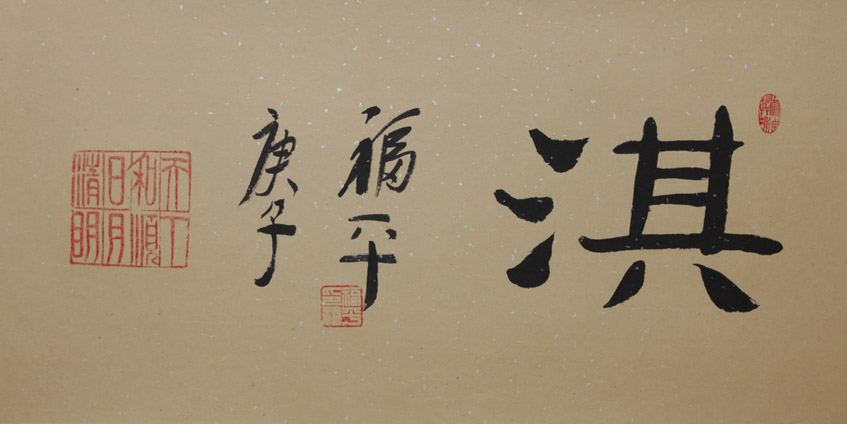 淇
福平
庚子
天下
和順
日月
清明